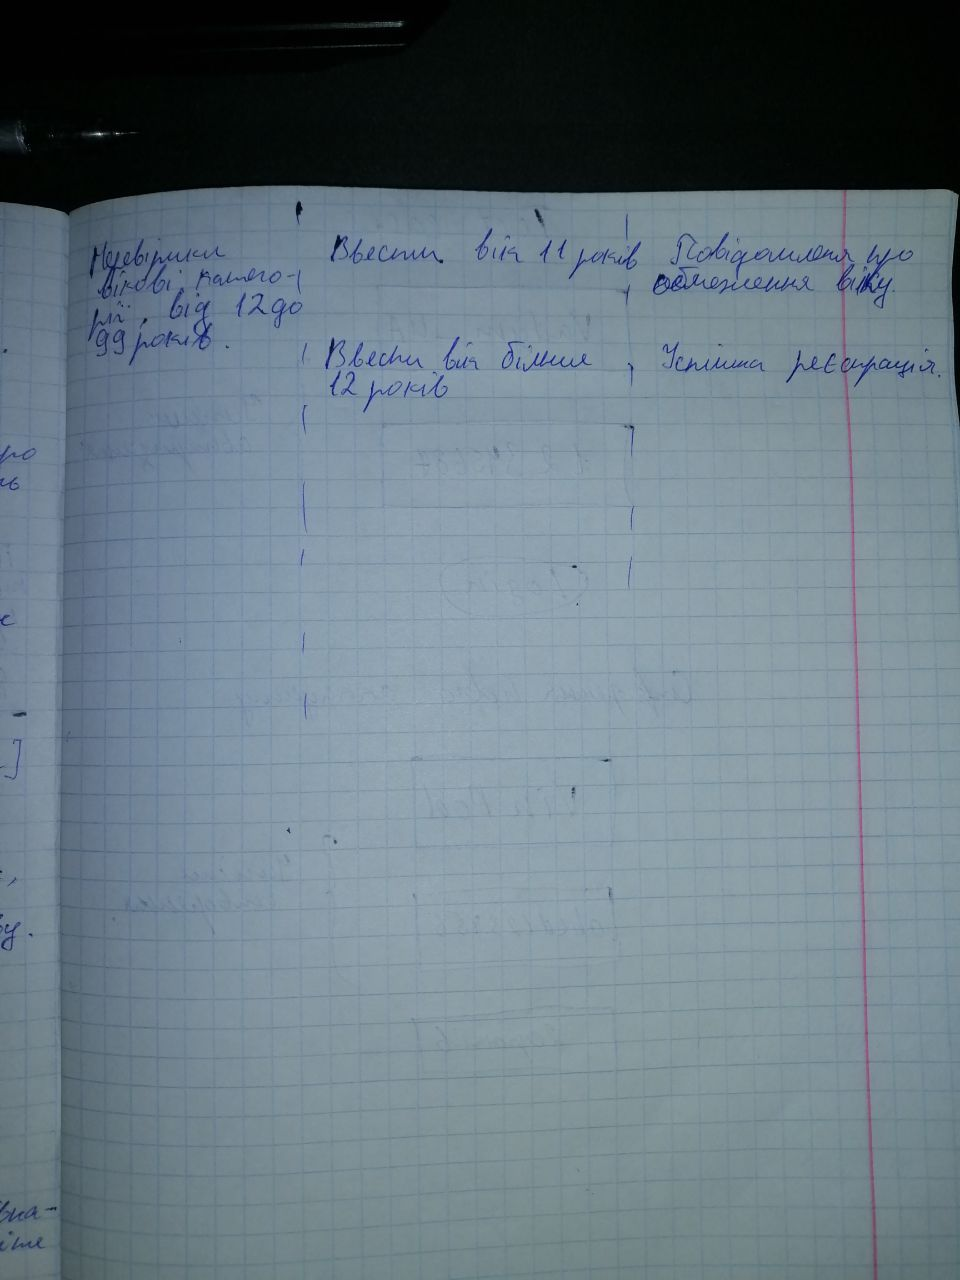 Перевірка
вікові катего-
рії, від 12 до
99 років.
Ввести вік 11 років
Повідомленя про
обмеження віку.
Ввести вік більше
12 років
Успішна реєстрація.
ро
ь
]
ву.